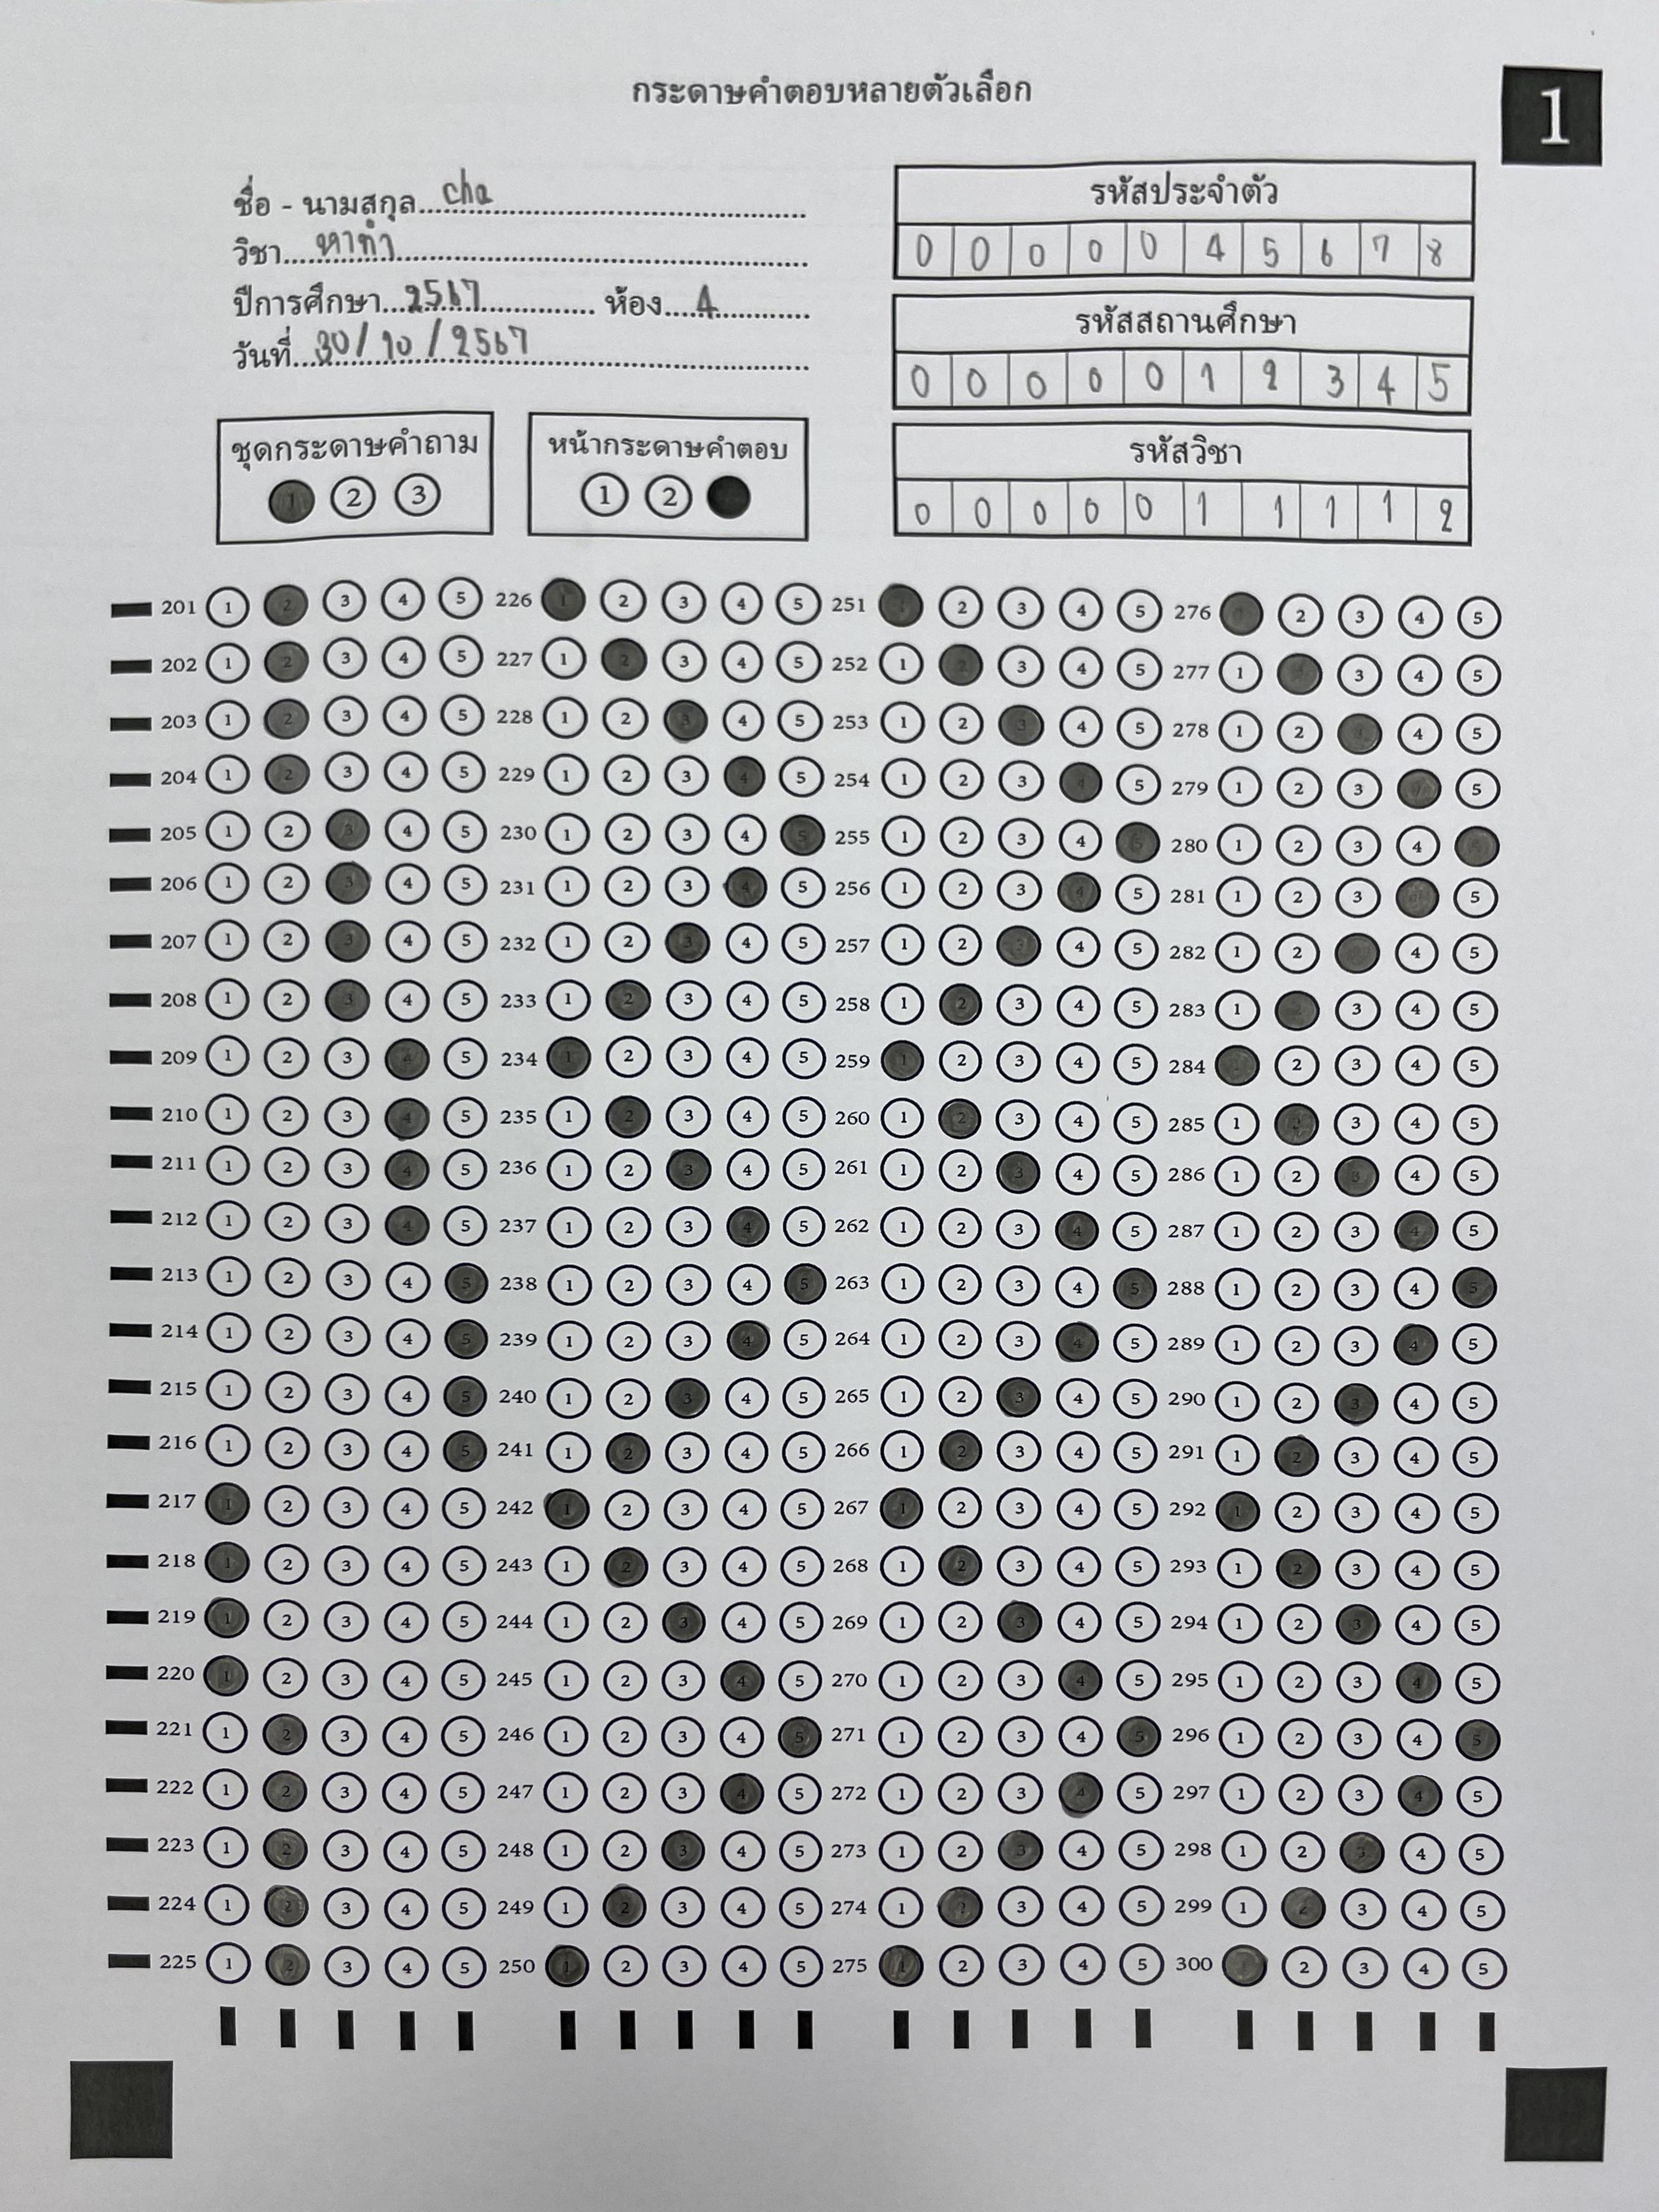 กระดาษคำตอบหลายตัวเลือก
1
ชื่อ - นามสกุล....cha....
วิชา....หาทำ....
ปีการศึกษา...2567.... ห้อง....4....
วันที่...30/10/2567....
รหัสประจำตัว
0 0 0 0 0 4 5 6 7 8
รหัสสถานศึกษา
0 0 0 0 0 1 2 3 4 5
รหัสวิชา
0 0 0 0 0 1 1 1 1 2
ชุดกระดาษคำถาม
1 2 3
หน้ากระดาษคำตอบ
1 2
201 1 2 3 4 5 226 1 2 3 4 5 251 1 2 3 4 5 276 2 3 4 5
202 1 2 3 4 5 227 1 2 3 4 5 252 1 2 3 4 5 277 1 3 4 5
203 1 2 3 4 5 228 1 2 3 4 5 253 1 2 3 4 5 278 1 2 3 4 5
204 1 2 3 4 5 229 1 2 3 4 5 254 1 2 3 4 5 279 1 2 3 4 5
205 1 2 3 4 5 230 1 2 3 4 5 255 1 2 3 4 5 280 1 2 3 4 5
206 1 2 3 4 5 231 1 2 3 4 5 256 1 2 3 4 5 281 1 2 3 4 5
207 1 2 3 4 5 232 1 2 3 4 5 257 1 2 3 4 5 282 1 2 4 5
208 1 2 3 4 5 233 1 2 3 4 5 258 1 2 3 4 5 283 1 2 3 4 5
209 1 2 3 4 5 234 1 2 3 4 5 259 1 2 3 4 5 284 1 2 3 4 5
210 1 2 3 4 5 235 1 2 3 4 5 260 1 2 3 4 5 285 1 2 3 4 5
211 1 2 3 4 5 236 1 2 3 4 5 261 1 2 3 4 5 286 1 2 3 4 5
212 1 2 3 4 5 237 1 2 3 4 5 262 1 2 3 4 5 287 1 2 3 4 5
213 1 2 3 4 5 238 1 2 3 4 5 263 1 2 3 4 5 288 1 2 3 4 5
214 1 2 3 4 5 239 1 2 3 4 5 264 1 2 3 4 5 289 1 2 3 4 5
215 1 2 3 4 5 240 1 2 3 4 5 265 1 2 3 4 5 290 1 2 3 4 5
216 1 2 3 4 5 241 1 2 3 4 5 266 1 2 3 4 5 291 1 2 3 4 5
217 1 2 3 4 5 242 1 2 3 4 5 267 1 2 3 4 5 292 1 2 3 4 5
218 1 2 3 4 5 243 1 2 3 4 5 268 1 2 3 4 5 293 1 2 3 4 5
219 1 2 3 4 5 244 1 2 3 4 5 269 1 2 3 4 5 294 1 2 3 4 5
220 1 2 3 4 5 245 1 2 3 4 5 270 1 2 3 4 5 295 1 2 3 4 5
221 1 2 3 4 5 246 1 2 3 4 5 271 1 2 3 4 5 296 1 2 3 4 5
222 1 2 3 4 5 247 1 2 3 4 5 272 1 2 3 4 5 297 1 2 3 4 5
223 1 2 3 4 5 248 1 2 3 4 5 273 1 2 3 4 5 298 1 2 3 4 5
224 1 2 3 4 5 249 1 2 3 4 5 274 1 2 3 4 5 299 1 2 3 4 5
225 1 2 3 4 5 250 1 2 3 4 5 275 1 2 3 4 5 300 1 2 3 4 5